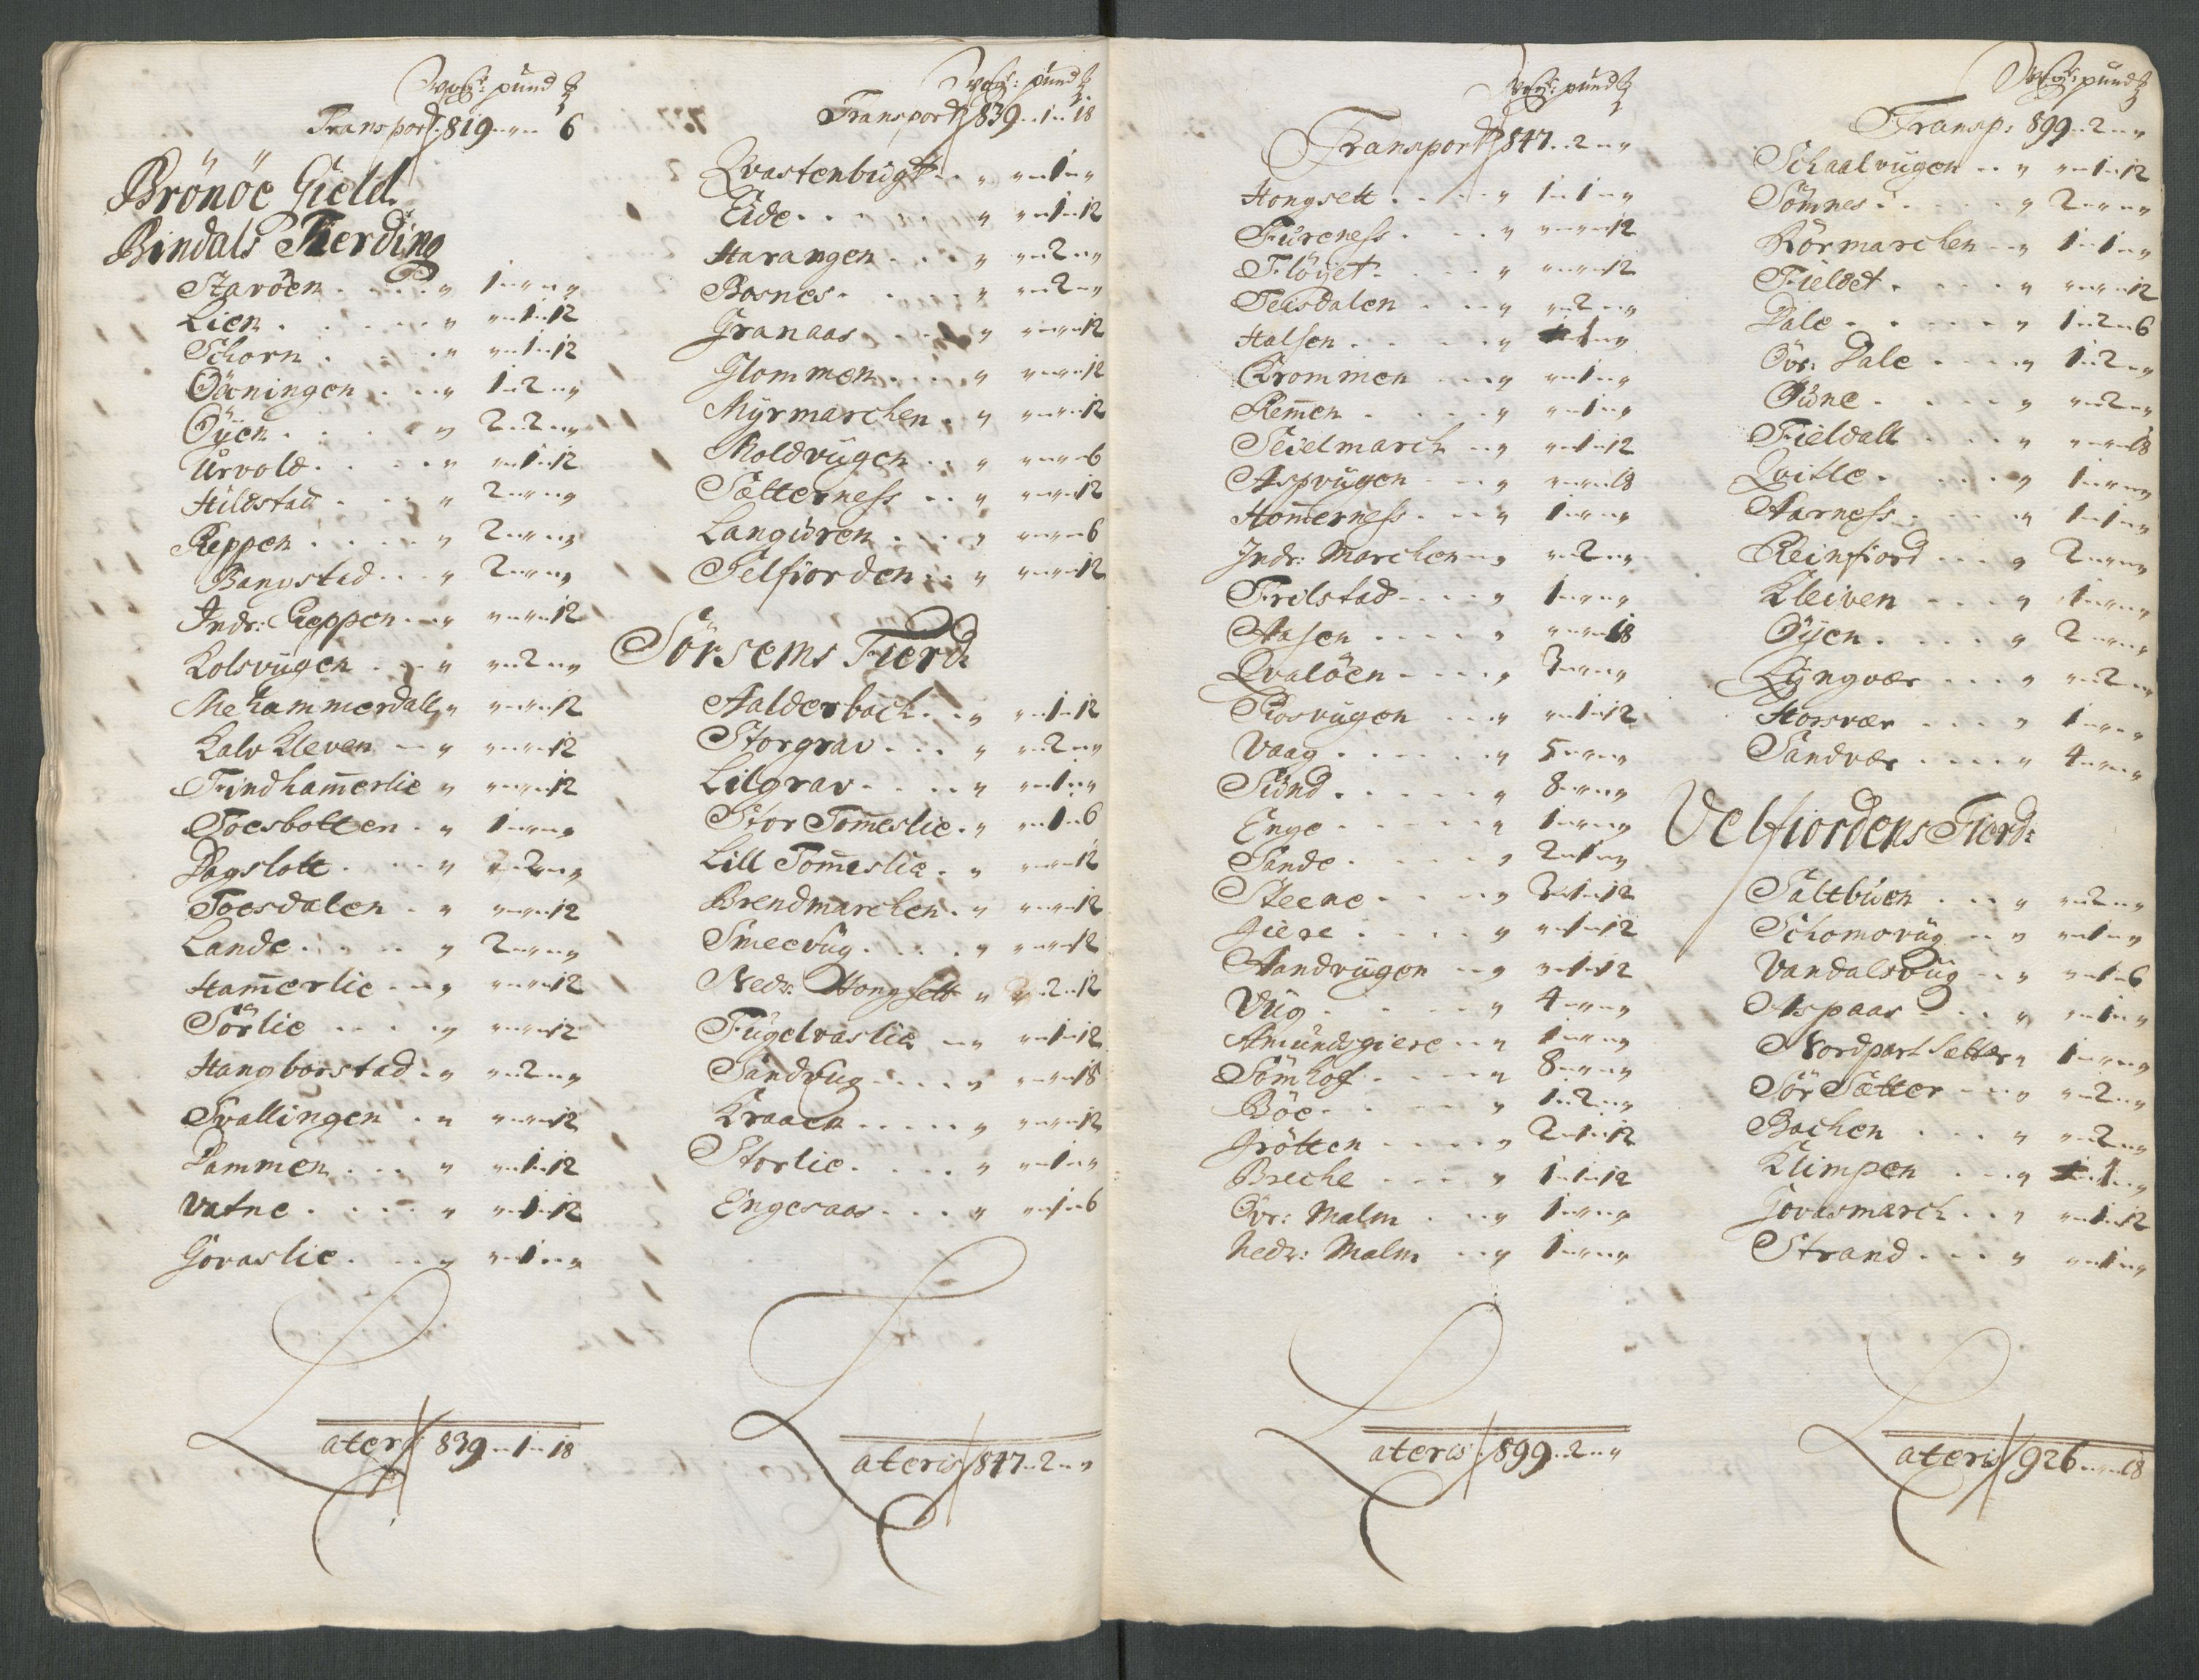 Wog: pund ℔
Transport 819 „ 6
Brönöe Gield.
Bindals Fierding
Staröen . . . „ 1 „ „
Lien . . . „ „ 1 12
Schorn . . . „ „ 1 12
Öxningen . . . „ 1 2 „
Öÿen . . . „ 2 2 „
Urvold . . . „ „ 1 12
Hildstad . . . „ 2 „ „
Reppen . . . „ 2 „ „
Bangstad . . . „ 2 „ „
Indr: Reppen . . „ „ „ 12
Kolsvügen . . . „ „ 2 „
Mehammerdall „ „ „ 12
Kalv Kleven . . „ „ „ 12
Trindham̄erlie „ „ „ 12
Toesbotten . . „ 1 „ „
Dagslott . . . „ „ 2 „
Toesdalen . . „ „ „ 12
Lande . . . „ 2 „ „
Ham̄erlie . . . „ „ „ 12
Sörlie . . . „ „ „ 12
Hangborstad . . „ „ 2 „
Svallingen . . „ „ „ 12
Dammen . . . „ „ 1 12
Vatne . . . „ „ 1 12
Govaslie . . . „ „ 1 „
Lateris 839 1 18
Wog: pund ℔
Transport 839 1 18
Qvastenbügt . . „ „ 1 „
Eide . . . „ „ 1 12
Harangen . . . „ „ 2 „
Bosnes . . . „ „ 2 „
Granaas . . . „ „ „ 12
Glommen . . . „ „ „ 12
Mÿrmarchen . . „ „ „ 12
Moldvügen . . „ „ „ 6
Sætterness . . „ „ „ 12
Langüren . . . „ „ „ 6
Telfiorden . . „ „ „ 12
Sörsems Fierd:
Aalderbach . . „ „ 1 12
Storgrav . . . „ „ 2 „
Lilgrav . . . „ „ 1 „
Stor Tom̄eslie . „ „ 1 6
Lill Tom̄eslie . „ „ „ 12
Brendmarchen . „ „ „ 12
Smeevüg . . . „ „ „ 12
Nedr: Hongsett „ 2 12
Fügelvaslie . . „ „ 1 12
Sandvüg . . . „ „ „ 18
Kraaen . . . „ „ „ 12
Storlie . . . „ „ 1 „
Engesaas . . . „ „ 1 6
Lateris 847 2 „
Wog: pund ℔
Transport 847 2 „
Hongsett . . . „ 1 1 „
Füreness . . . „ „ „ 12
Flöÿet . . . „ „ „ 12
Teisdalen . . . „ „ 2 „
Halsen . . . „ 1 „
Krommen . . . „ „ 1 „
Rem̄en . . . „ „ 1 „
Seielmarch . . „ „ 1 12
Aspvügen . . . „ „ „ 18
Hom̄erness . . . „ 1 „ „
Indr: Marchen „ „ 2 „
Frilstad . . . „ 1 „ „
Aasen . . . „ „ „ 18
Qvalöen . . . „ 3 „ „
Rosvügen . . . „ „ 1 12
Vaag . . . „ 5 „ „
Sund . . . „ 8 „ „
Enge . . . „ 1 „ „
Sande . . . „ 2 1 „
Steene . . . „ 2 1 12
Giere . . . „ „ 1 12
Aandvügen . . „ „ 1 12
Vüg . . . „ 4 „ „
Amündsgiere . . „ 1 „ „
Sömhof . . . „ 8 „ „
Böe . . . „ 1 2 „
Grötten . . . „ 2 1 12
Breche . . . „ 1 1 12
Övr: Malm . . . „ 1 „ „
Nedr: Malm . . „ 1 „ „
Lateris 899 2 „
Wog: pund ℔
Transp: 899 2 „
Schaalvügen . . „ „ 1 12
Sömnes . . . „ 2 „ „
Rörmarchen . . „ 1 1 „
Fieldet . . . „ „ „ 12
Dale . . . „ 1 2 6
Övr: Dale . . . „ 1 2 „
Tüne . . . „ „ 2 „
Fieldall . . . „ „ „ 18
Qvitle . . . „ 1 „ „
Aarness . . . „ 1 1 „
Reinfiord . . . „ 2 „ „
Kleiven . . . „ 1 „ „
Öÿen . . . „ 2 „ „
Lÿngvær . . . „ „ 2 „
Horsvær . . . „ 1 „ „
Sandvær . . . „ 4 „ „
Velfiordens Fierd:
Saltbüen . . . „ „ 2 „
Schomovüg . . „ „ 1 „
Vandalsvüg . . „ „ 1 6
Aspaas . . . „ „ 1 „
Nordpart Sætter „ 1 „ „
Sör Sætter . . . „ „ 2 „
Bachen . . . „ „ 2 „
Klimpen . . . „ 1 „
Govasmarch . . „ „ 1 12
Strand . . . „ „ 1 „
Lateris 926 „ 18